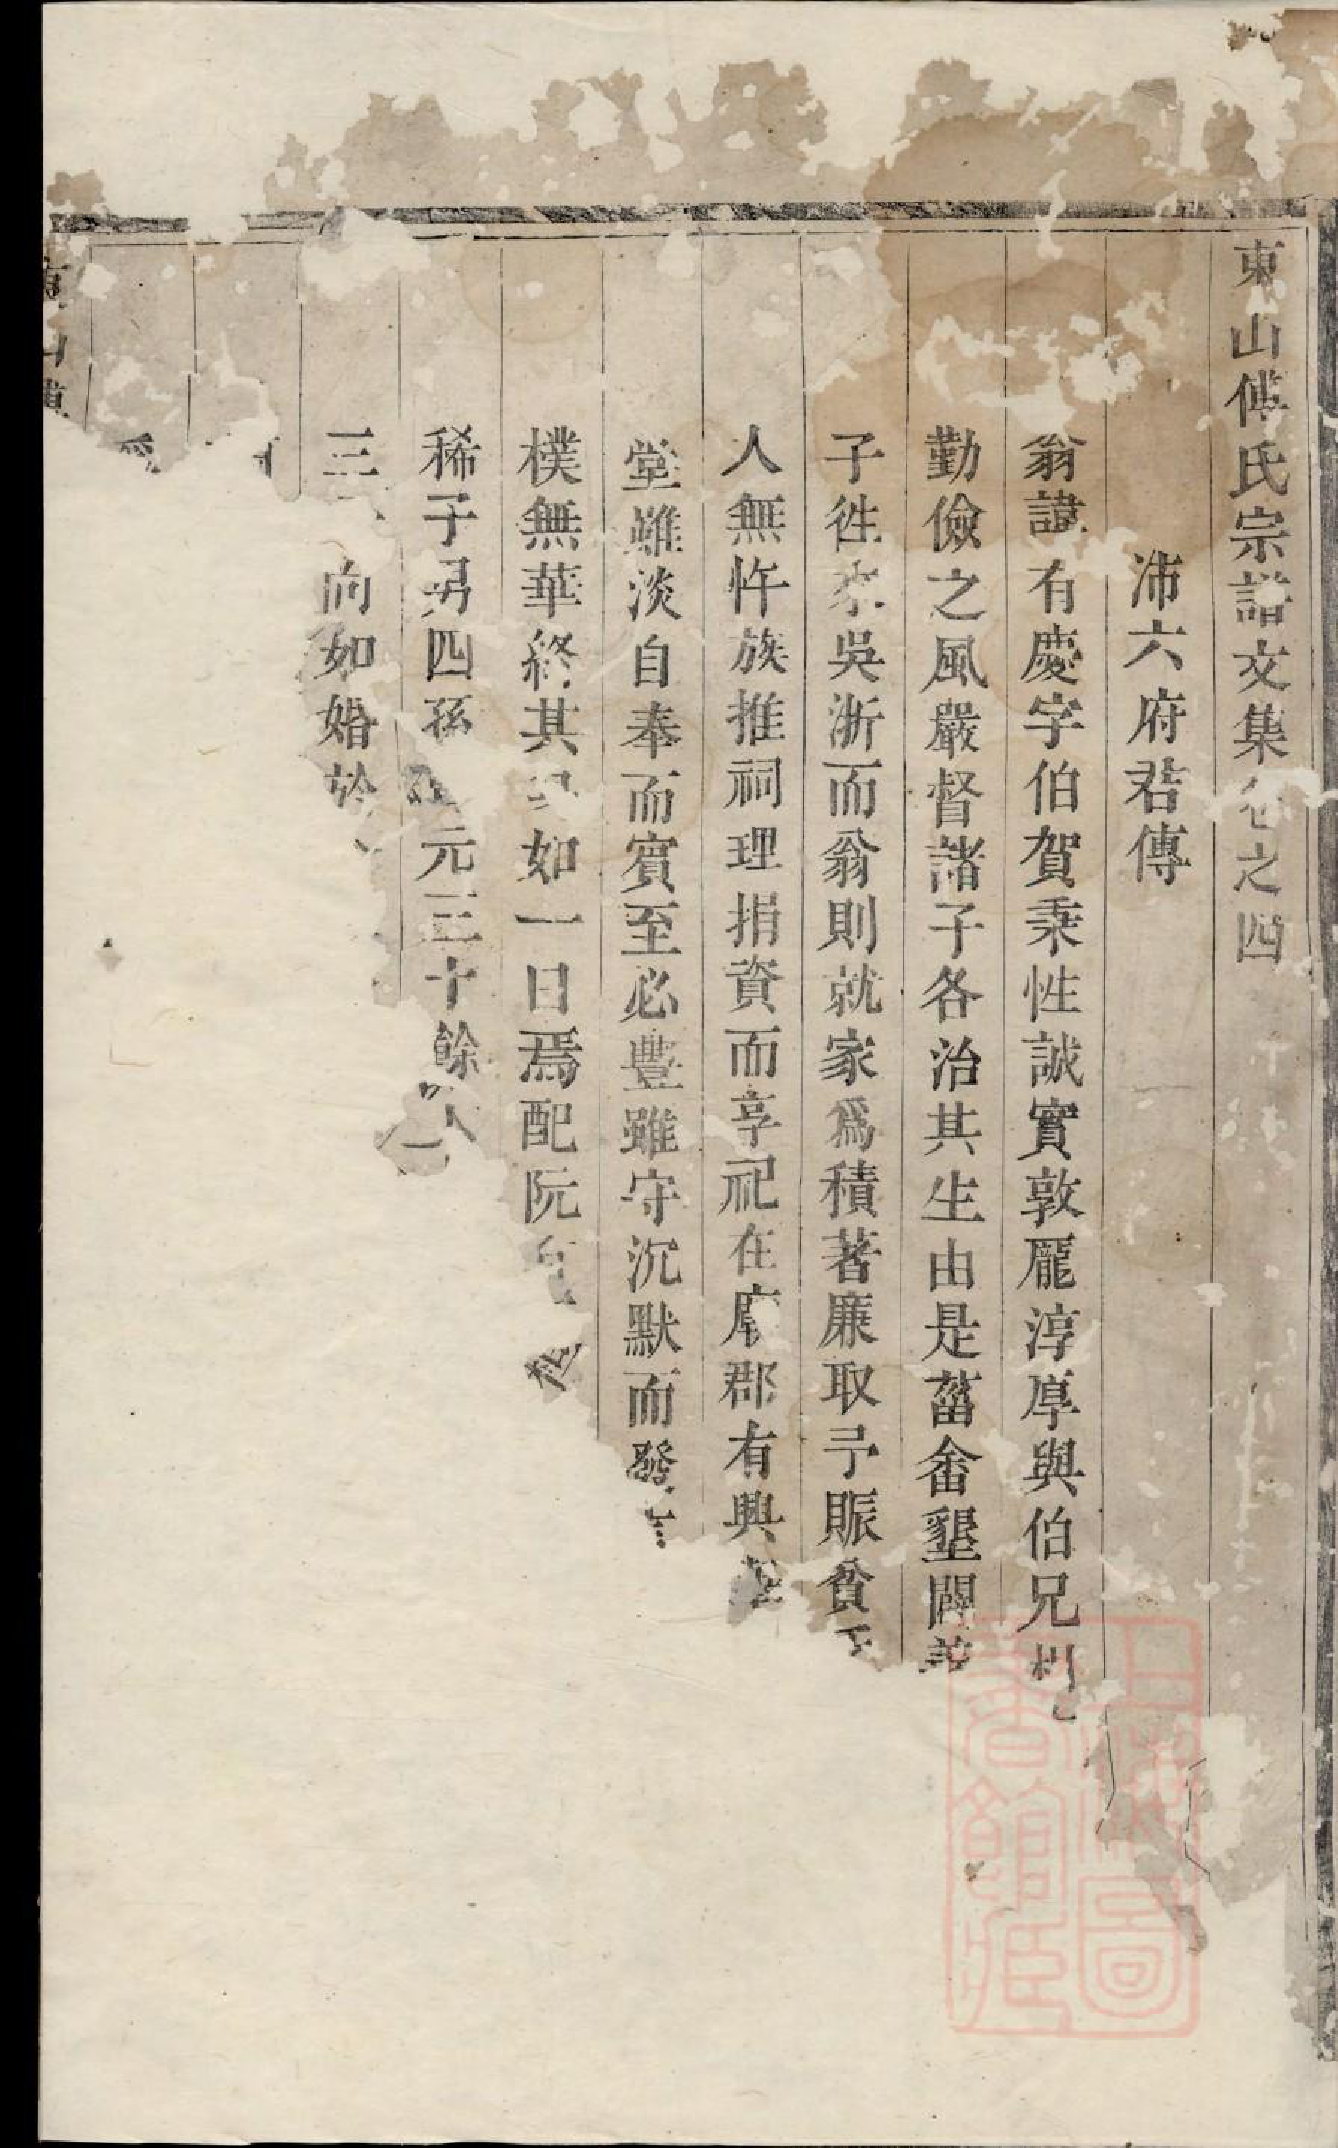 東山傅氏宗譜文集卷之四
沛六府君傳
翁諱有慶字伯賀秉性誠實敦龐淳厚與伯兄
勤儉之風嚴督諸子各治其生由是菑畬墾闢
子徃來吳浙而翁則就家爲積著廉取予賑貧
人無忤族推祠理捐資而享祀在廟郡有興
堂雖淡自奉而賓至必豐雖守沉默而發
樸無華終其身如一日焉配阮
稀子男四孫元三十餘人
三向如婚於
上海圖書館藏